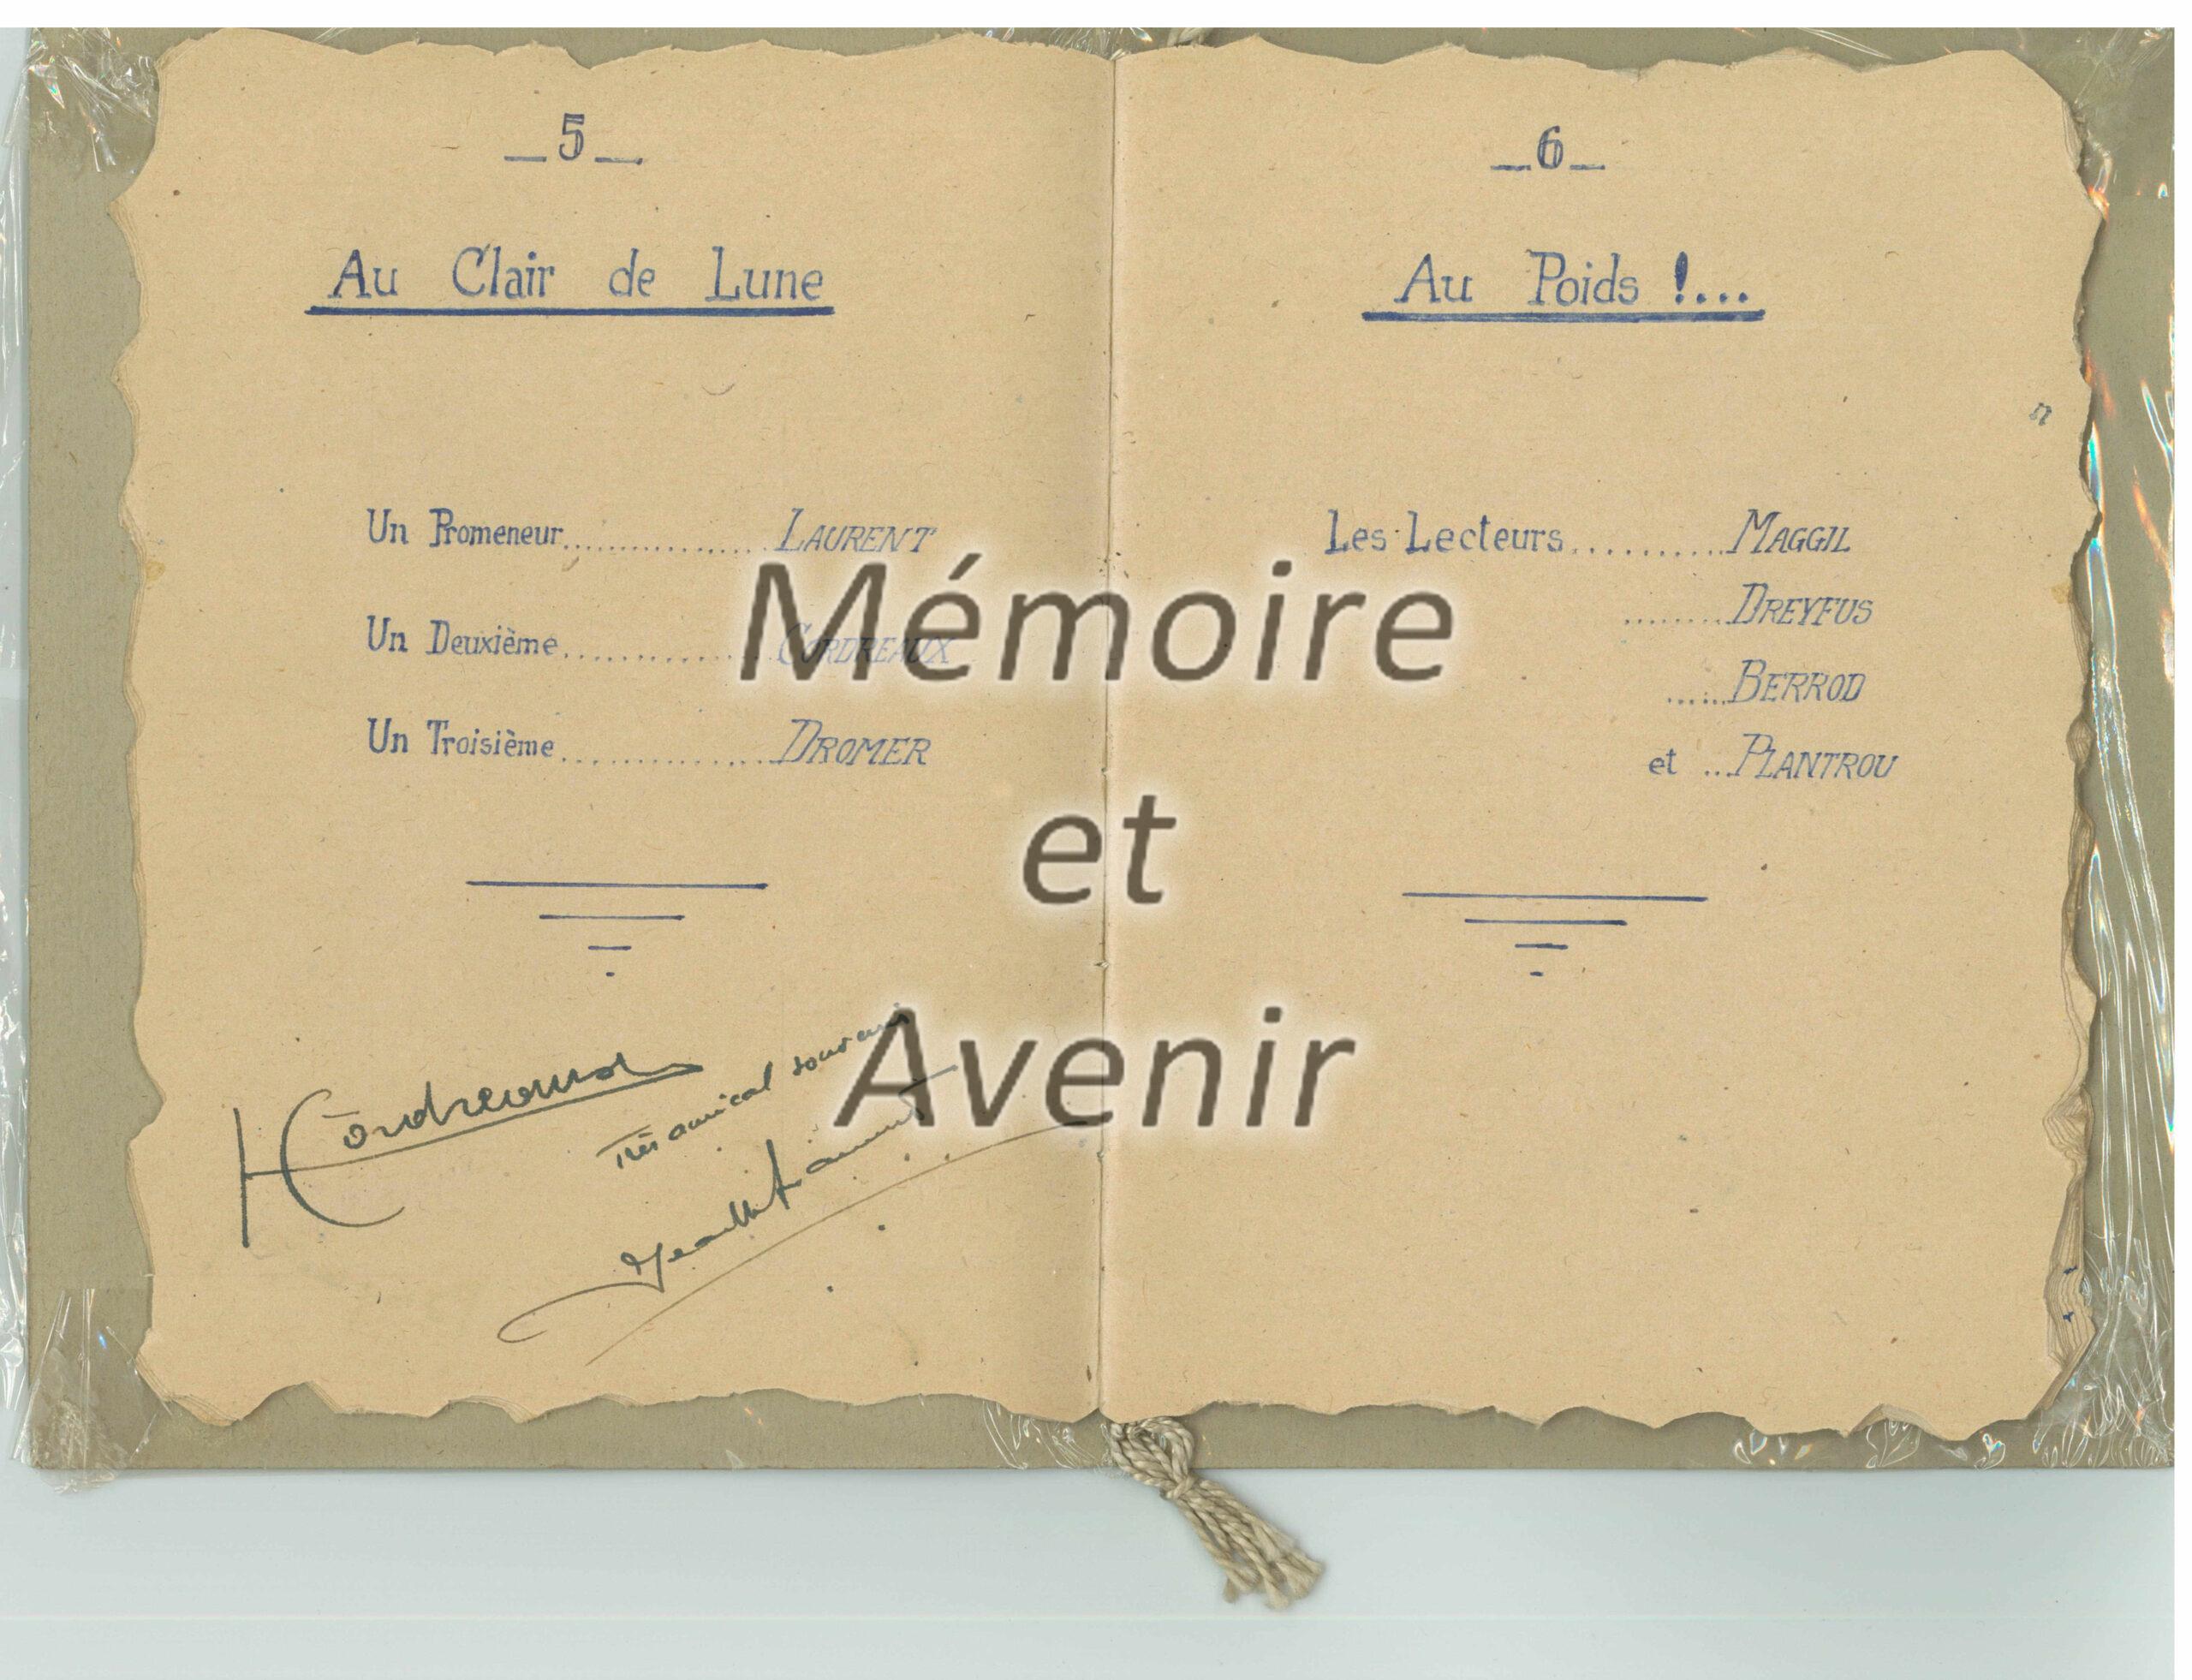 _5_
Au Clair de Lune
Un Promeneur.................LAURENT
Un Deuxième...............CORDREAUX
Un Troisième...............DROMER
Très amical souvenir
_6_
Au Poids !...
Les Lecteurs...........MAGGIL
........DREYFUS
......BERROD
et ...PLANTROU
Mémoire
et
Avenir